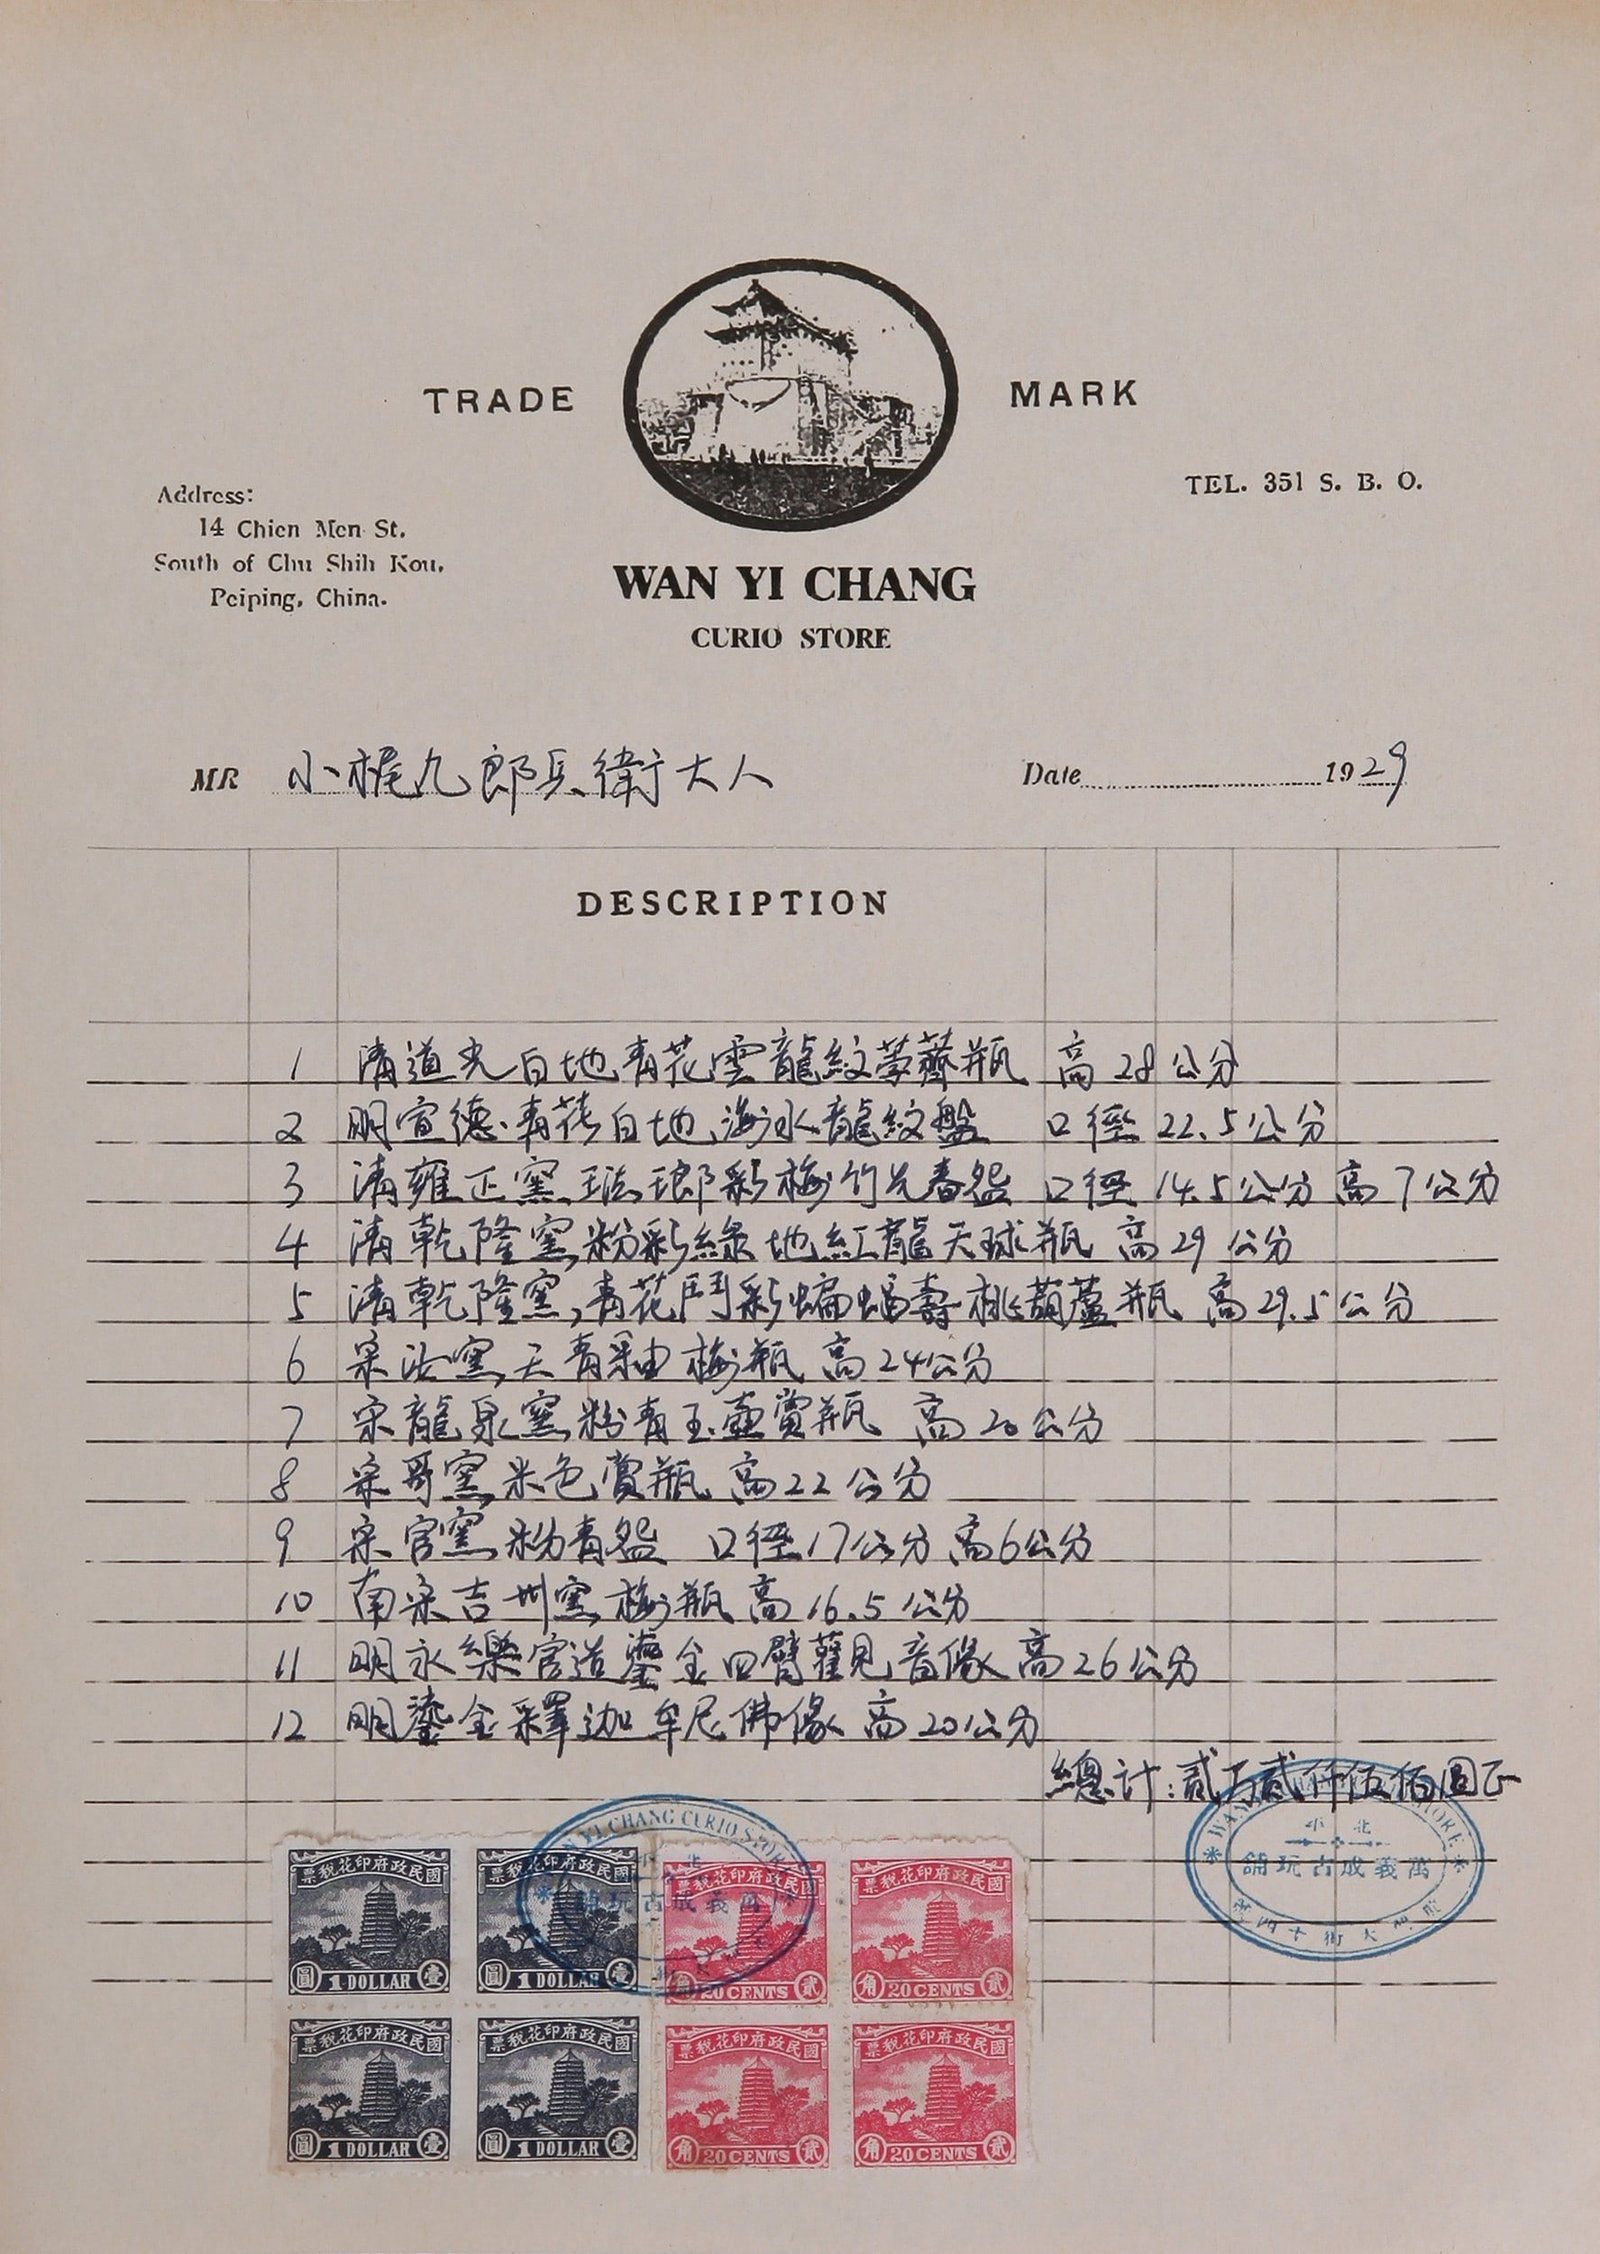 TRADE MARK
Address:
14 Chien Men St.
South of Chu Shih Kou,
Peiping, China.
TEL. 351 S. B. O.
WAN YI CHANG
CURIO STORE
MR 小梶九郎兵衛大人
Date 1929
DESCRIPTION
1 清道光白地青花雲龍紋荸薺瓶 高28公分
2 明宣德青花白地海水龍紋盤 口徑22.5公分
3 清雍正窯琺瑯彩梅竹先春盌 口徑14.5公分 高7公分
4 清乾隆窯粉彩綠地紅龍天球瓶 高29公分
5 清乾隆窯,青花鬥彩蝙蝠壽桃葫蘆瓶 高29.5公分
6 宋汝窯天青釉梅瓶 高24公分
7 宋龍泉窯粉青玉壺賞瓶 高20公分
8 宋哥窯米色賞瓶 高22公分
9 宋官窯粉青盌 口徑17公分 高6公分
10 南宋吉州窯梅瓶 高16.5公分
11 明永樂宮造鎏金四臂觀音像 高26公分
12 明鎏金釋迦牟尼佛像 高20公分
總计:貳万貳仟伍佰圓正
WAN YI CHANG CURIO STORE
北平
萬義成古玩舖
前門大街十四號
國民政府印花稅票
圓 1 DOLLAR 壹
國民政府印花稅票
圓 1 DOLLAR 壹
國民政府印花稅票
角 20 CENTS 貳
國民政府印花稅票
角 20 CENTS 貳
國民政府印花稅票
圓 1 DOLLAR 壹
國民政府印花稅票
圓 1 DOLLAR 壹
國民政府印花稅票
角 20 CENTS 貳
國民政府印花稅票
角 20 CENTS 貳
YI CHANG CURIO STORE
萬義成古玩舖